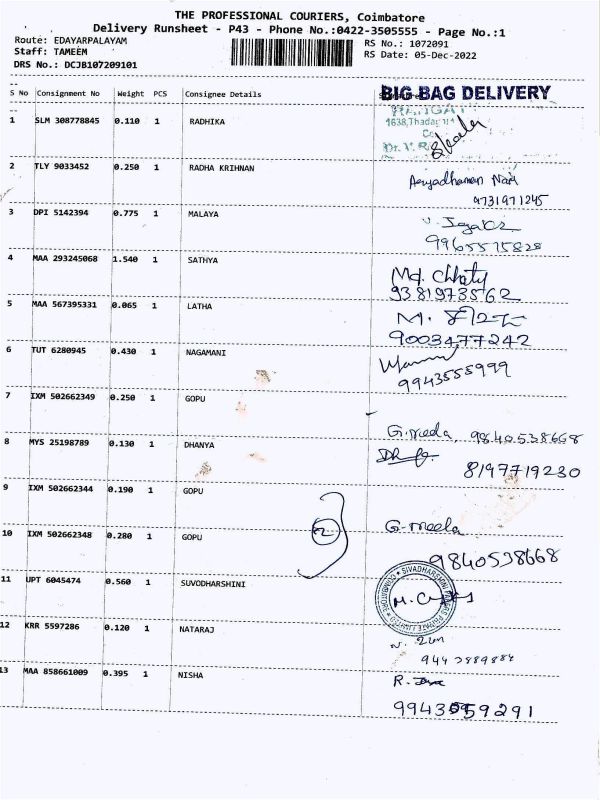 THE PROFESSIONAL COURIERS, Coimbatore
Delivery Runsheet - P43 - Phone No.:0422-3505555 - Page No.:1
Route: EDAYARPALAYAM RS No.: 1072091
Staff: TAMEEM RS Date: 05-Dec-2022
DRS No.: DCJB107209101
S No Consignment No Weight PCS Consignee Details BIG BAG DELIVERY
1 SLM 308778845 0.110 1 RADHIKA
1638,Thada
Co
Dr. V. R
2 TLY 9033452 0.250 1 RADHA KRIHNAN
9731971245
3 DPI 5142394 0.775 1 MALAYA
9965575828
4 MAA 293245068 1.540 1 SATHYA Md. Chhoty
9381973562
5 MAA 567395331 0.065 1 LATHA M.
9003477242
6 TUT 6280945 0.430 1 NAGAMANI
9943555999
7 IXM 502662349 0.250 1 GOPU G. meela 9840538668
8 MYS 25198789 0.130 1 DHANYA
8197719230
9 IXM 502662344 0.190 1 GOPU
2 G. meela
10 IXM 502662348 0.280 1 GOPU
9840538668
11 UPT 6045474 0.560 1 SUVODHARSHINI
12 KRR 5597286 0.120 1 NATARAJ
13 MAA 858661009 0.395 1 NISHA R.